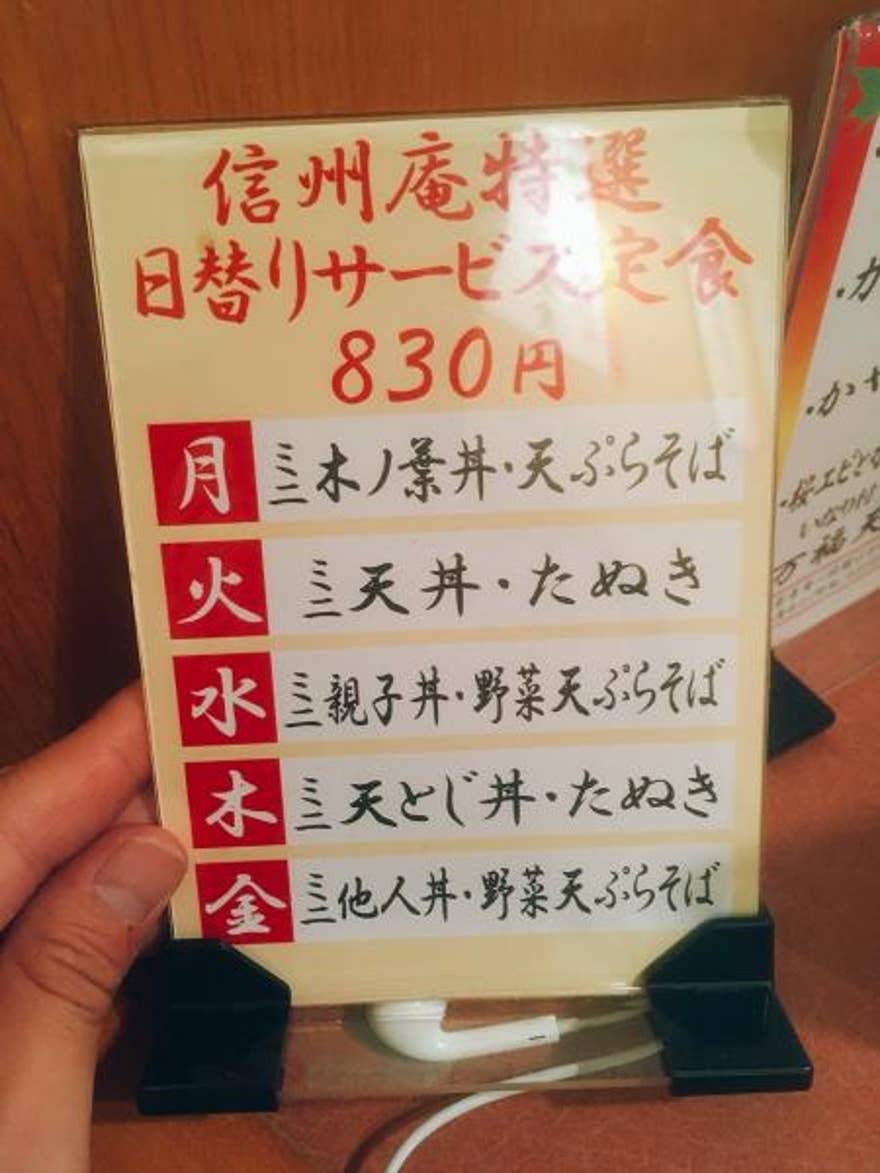 信州庵特選
日替りサービス定食
830円
月 ミニ木ノ葉丼・天ぷらそば
火 ミニ天丼・たぬき
水 ミニ親子丼・野菜天ぷらそば
木 ミニ天とじ丼・たぬき
金 ミニ他人丼・野菜天ぷらそば
・か
・かや
・桜エビとな
いなり付
万福天